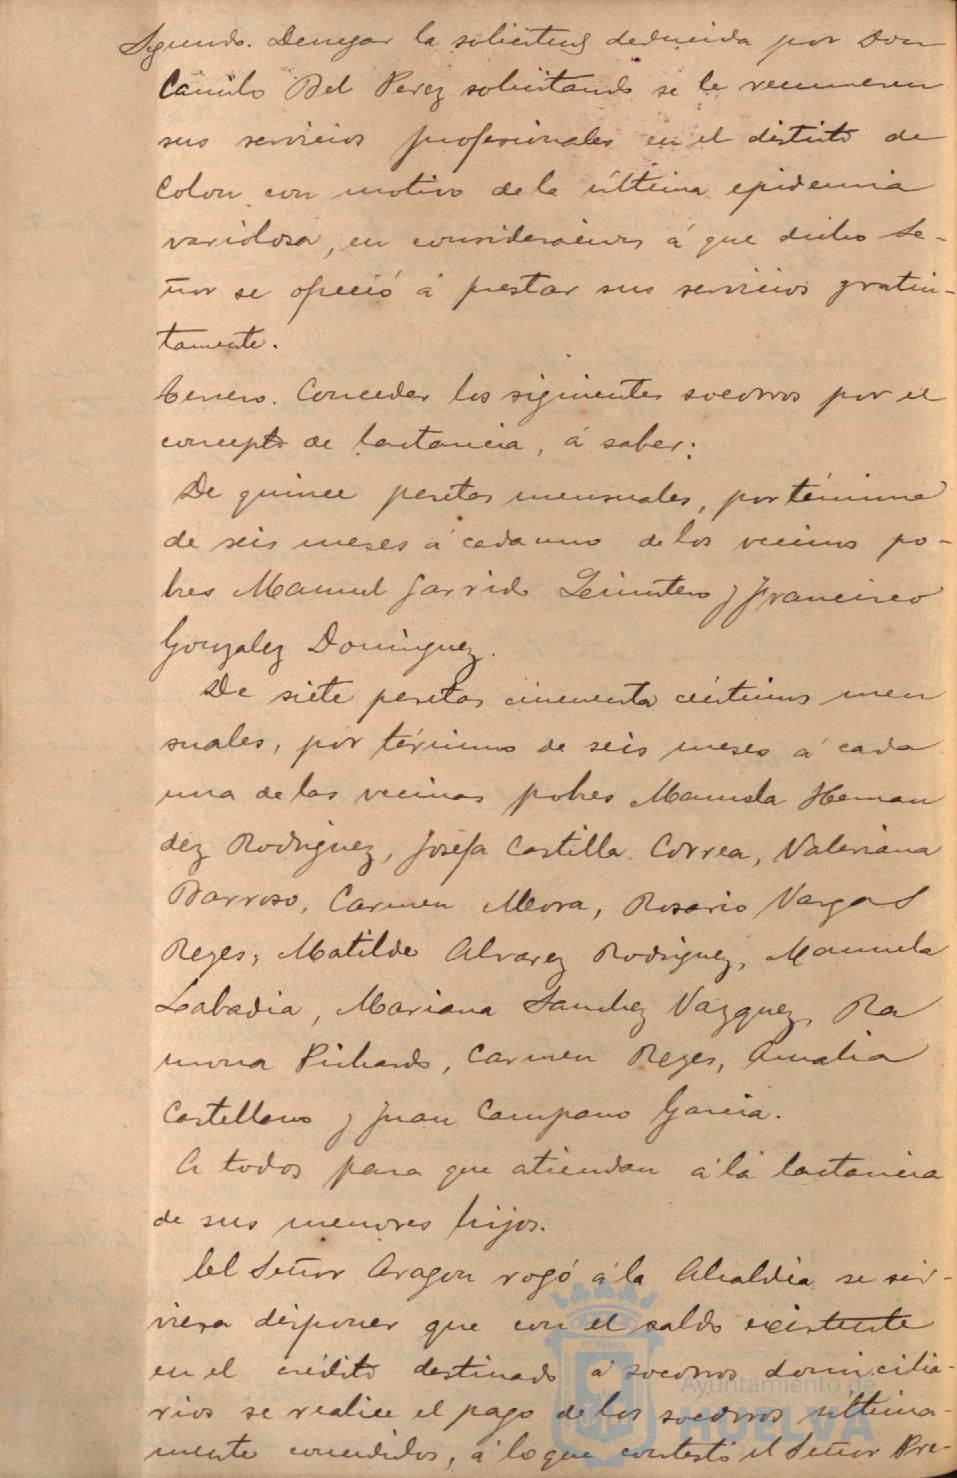 Segundo. Denegar la solicitud deducida por Don
Camilo Bel Perez solicitando se le remuneren
sus servicios profesionales en el distrito de
Colon con motivo de la última epidemia
variolosa, en consideracion á que dicho Se-
ñor se ofreció á prestar sus servicios gratui-
tamente.
Tercero. Conceder los siguientes socorros por el
concepto de lactancia, á saber:
De quince pesetas mensuales, por término
de seis meses á cada uno de los vecinos po-
bres Manuel Garrido Quintero y Francisco
Gonzalez Dominguez.
De siete pesetas cincuenta céntimos men
suales, por término de seis meses á cada
una de las vecinas pobres Manuela Hernan
dez Rodriguez, Josefa Castilla Correa, Valeriana
Barroso, Carmen Mora, Rosario Vargas
Reyes, Matilde Alvarez Rodriguez, Manuela
Labadia, Mariana Sanchez Vazquez, Ra
mona Pichardo, Carmen Reyes, Amalia
Castellano y Juan Campano Garcia.
A todos para que atiendan á la lactancia
de sus menores hijos.
El Señor Aragon rogó á la Alcaldia se sir-
viera disponer que con el saldo existente
en el crédito destinado á socorros domicilia-
rios se realice el pago de los socorros ultima-
mente concedidos, á lo que contestó el Señor Pre-
Ayuntamiento de
HUELVA